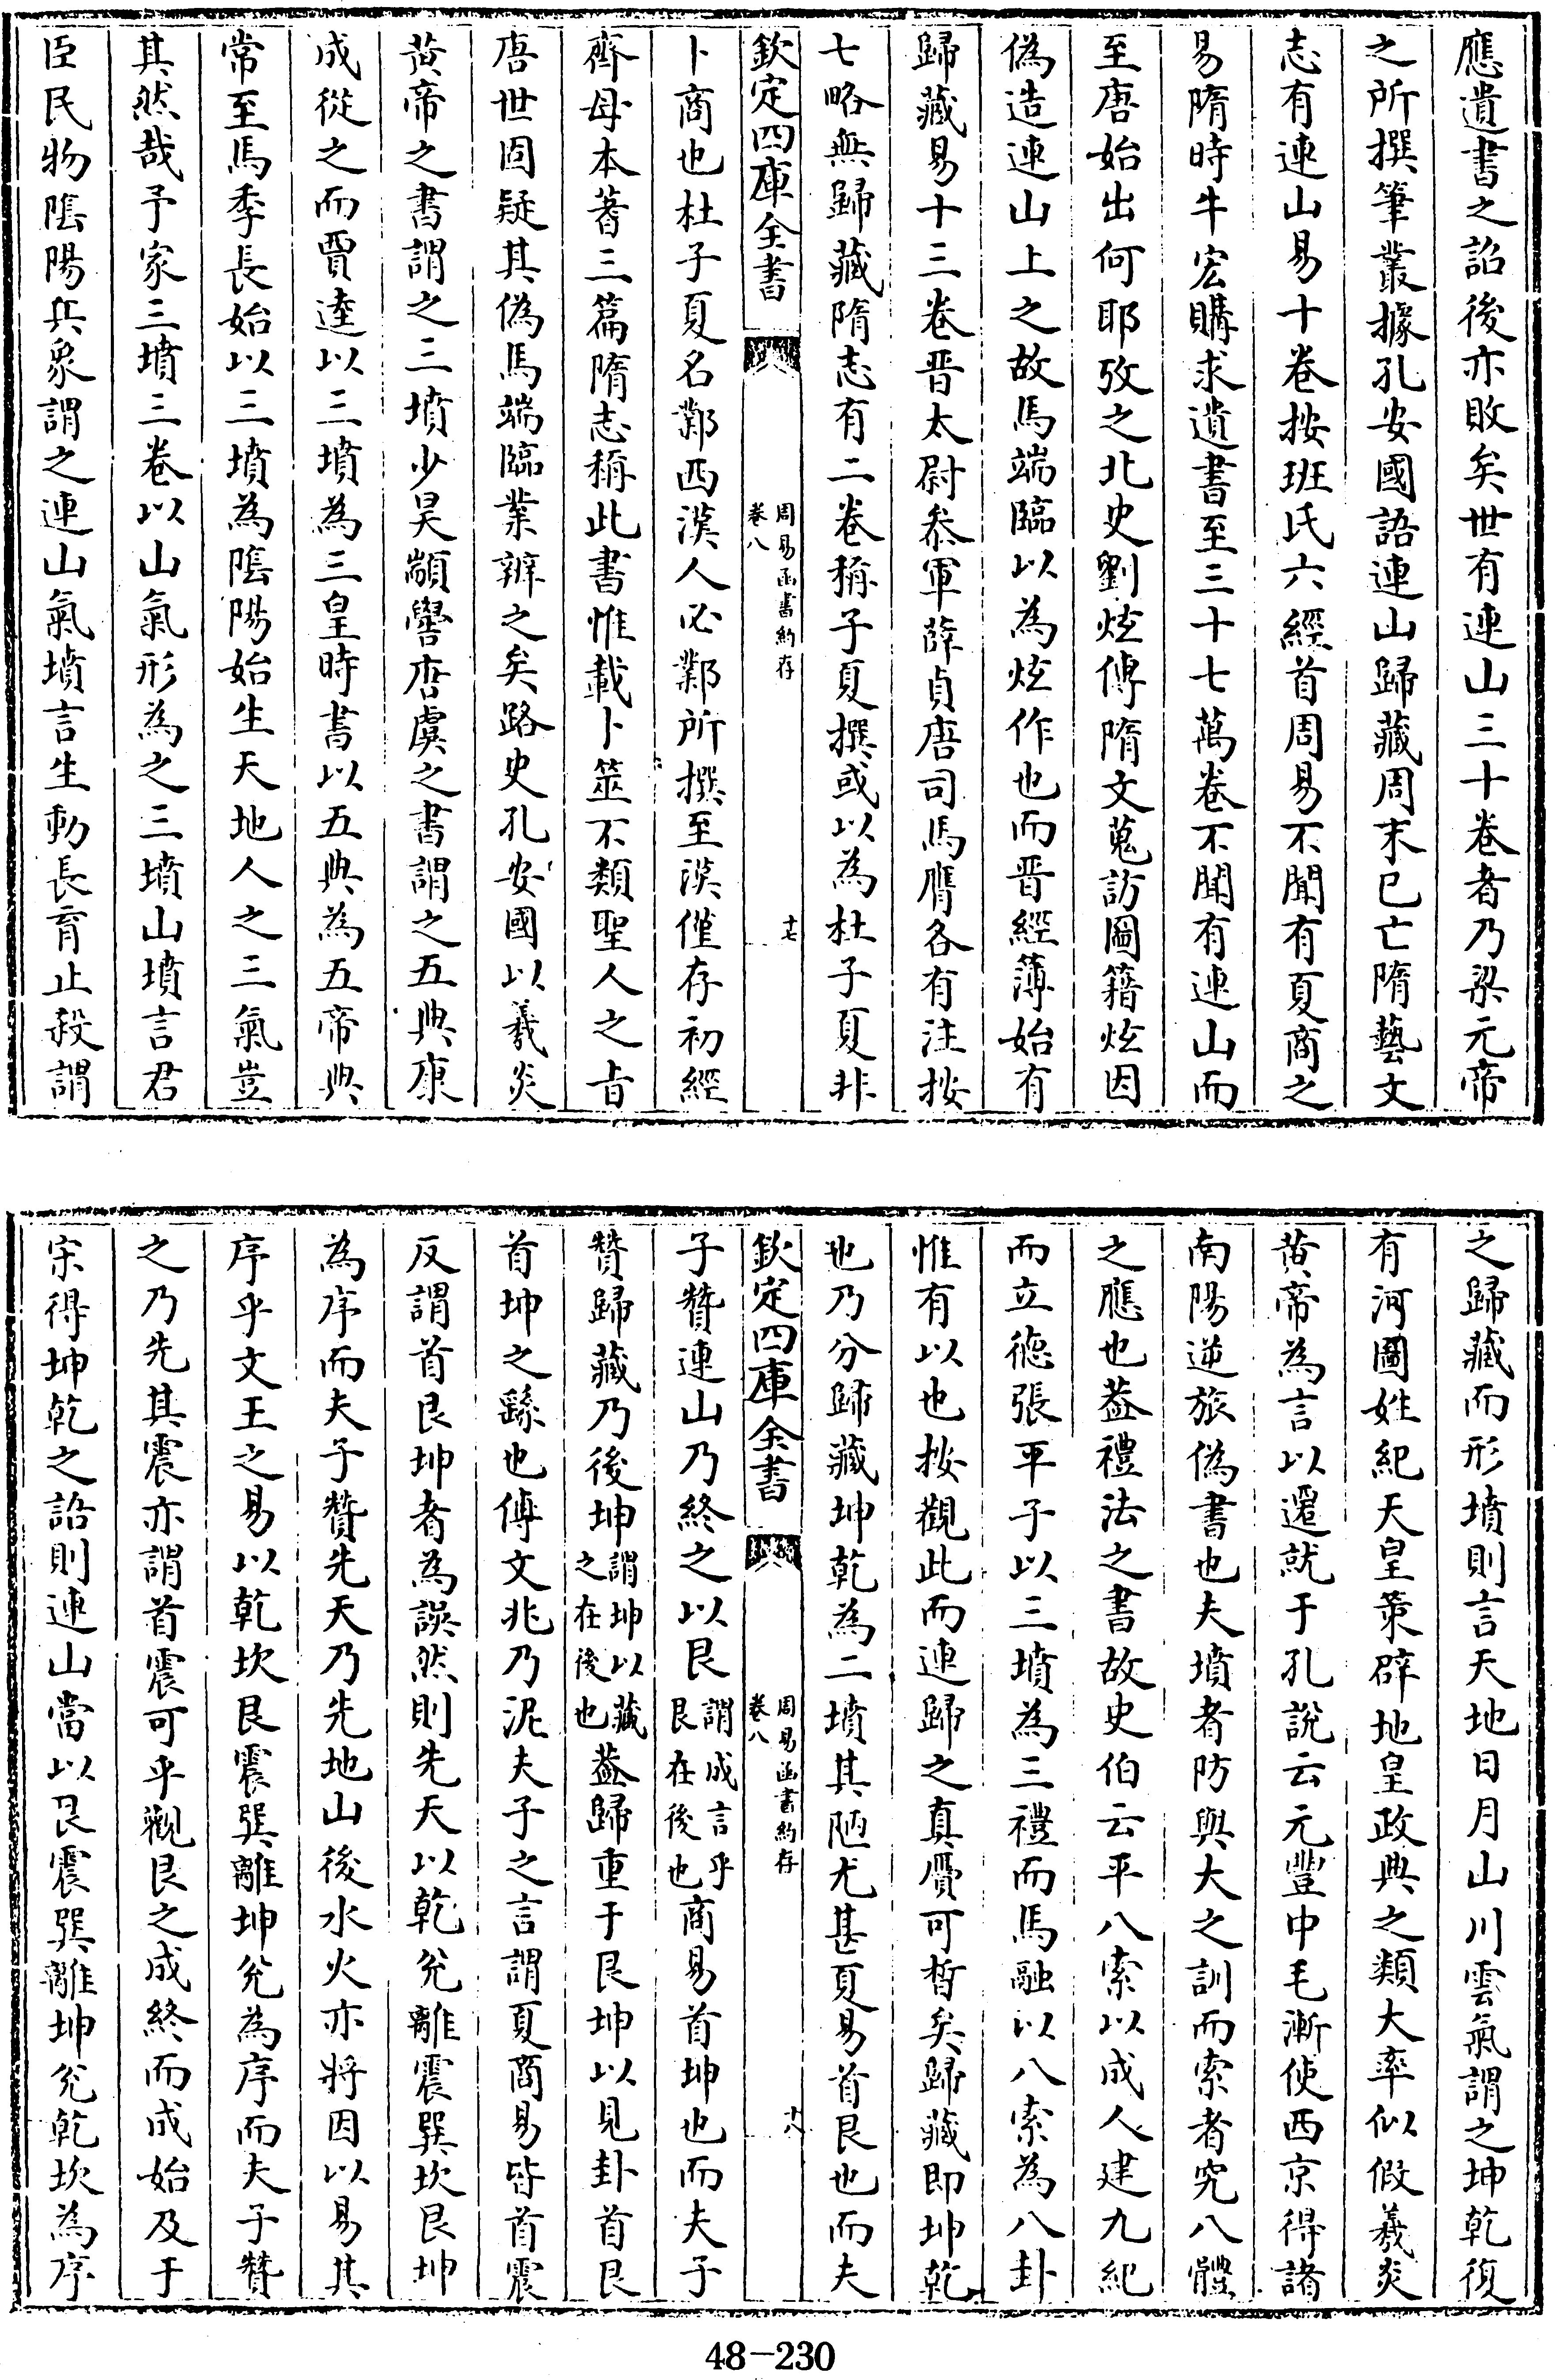 應遺書之詔後亦敗矣世有連山三十卷者乃梁元帝
之所撰筆叢據孔安國語連山歸藏周末已亡隋藝文
志有連山易十卷按班氏六經首周易不聞有夏商之
易隋時牛宏購求遺書至三十七萬卷不聞有連山而
至唐始出何耶攷之北史劉炫傳隋文蒐訪圖籍炫因
偽造連山上之故馬端臨以為炫作也而晋經簿始有
歸藏易十三卷晋太尉叅軍薛貞唐司馬膺各有注按
七略無歸藏隋志有二卷稱子夏撰或以為杜子夏非
欽定四庫全書
周易函書約存
卷八
十七
卜商也杜子夏名鄴西漢人必鄴所撰至漢僅存初經
齊母本蓍三篇隋志稱此書惟載卜筮不類聖人之㫖
唐世固疑其偽馬端臨業辨之矣路史孔安國以羲炎
黄帝之書謂之三墳少昊顓嚳唐虞之書謂之五典康
成從之而賈逵以三墳為三皇時書以五典為五帝典
常至馬季長始以三墳為隂陽始生天地人之三氣豈
其然哉予家三墳三卷以山氣形為之三墳山墳言君
臣民物隂陽兵象謂之連山氣墳言生動長育止殺謂
之歸藏而形墳則言天地日月山川雲氣謂之坤乾復
有河圖姓紀天皇策辟地皇政典之類大率似假羲炎
黄帝為言以遷就于孔說云元豐中毛漸使西京得諸
南陽逆旅偽書也夫墳者防與大之訓而索者究八體
之應也葢禮法之書故史伯云平八索以成人建九紀
而立德張平子以三墳為三禮而馬融以八索為八卦
惟有以也按觀此而連歸之真贋可晳矣歸藏即坤乾
也乃分歸藏坤乾為二墳其陋尤甚夏易首艮也而夫
欽定四庫全書
周易函書約存
卷八
十八
子贊連山乃終之以艮謂成言乎艮在後也商易首坤也而夫子
贊歸藏乃後坤謂坤以藏之在後也葢歸重于艮坤以見卦首艮
首坤之繇也傳文兆乃泥夫子之言謂夏商易皆首震
反謂首艮坤者為誤然則先天以乾兊離震巽坎艮坤
為序而夫子贊先天乃先地山後水火亦將因以易其
序乎文王之易以乾坎艮震巽離坤兊為序而夫子贊
之乃先其震亦謂首震可乎觀艮之成終而成始及于
宋得坤乾之語則連山當以艮震巽離坤兊乾坎為序
48-230